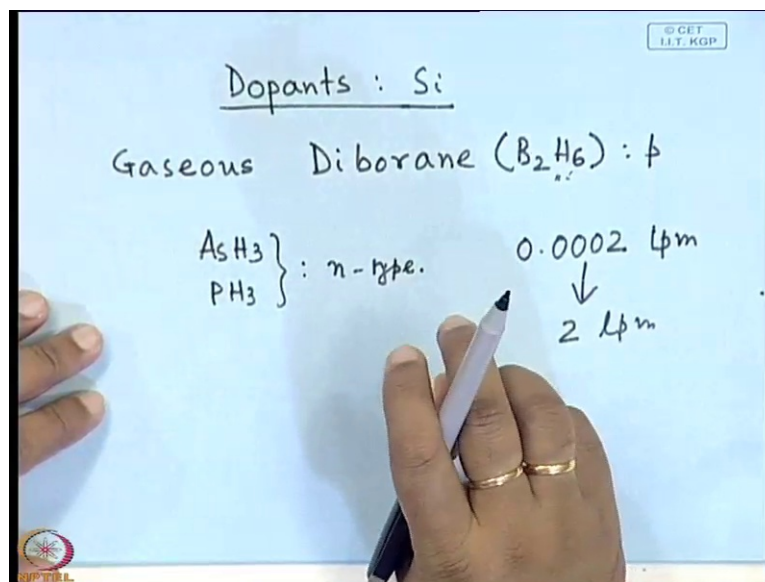 © CET
I.I.T. KGP
Dopants : Si
Gaseous Diborane (B2H6) : p
AsH3
PH3
} : n-type.
0.0002 lpm
↓
2 lpm
NPTEL